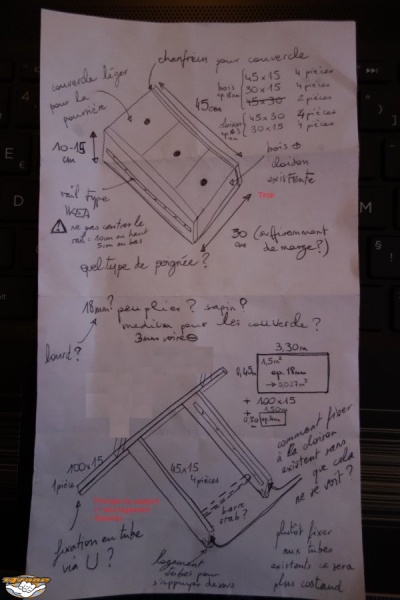 chanfrein pour couvercle
couvercle léger
pour la
poussière
bois
ep. 18mm
45 x 15 4 pièces
30 x 15 4 pièces
45 x 30 2 pièces
cloison
45 x 30 4 pièces
30 x 15 4 pièces
45cm
10-15
cm
bois
cloison
existante
rail type
IKEA
ne pas centrer le
rail: 10cm en haut
5cm en bas
30
cm
(suffisamment
de marge?)
quel type de poignée?
18mm? peuplier? sapin?
medium pour les couvercle?
3mm voire
lourd?
3,30m
0,45m
1,5m²
ep. 18mm
→ 0,027m³
+ 100x15
1,50m
+
0,30
100x15
1 pièce
45x15
4 pièces
barre
stab?
comment fixer
à la cloison
existent sans
que cela
ne se voit?
fixation en tube
via U?
logement
tubes pour
s'appuyer dessus
plutôt fixer
aux tubes
existants ce sera
plus costaud